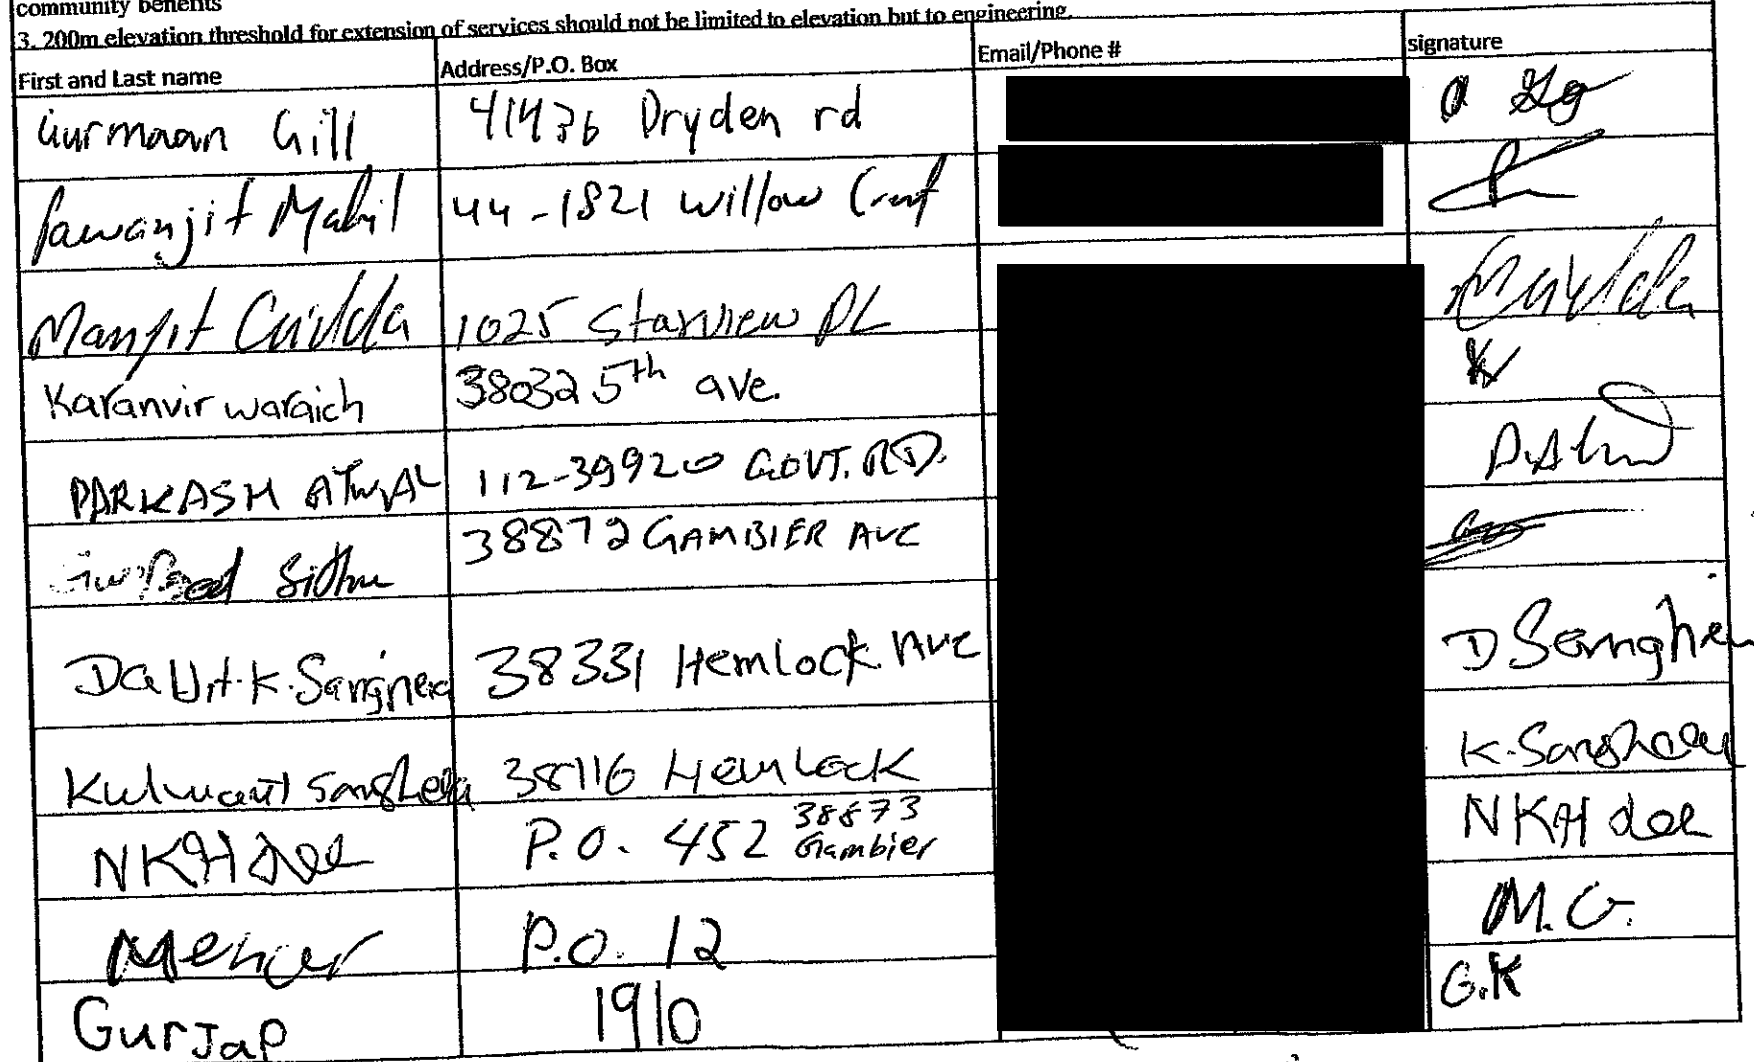 community benefits
3. 200m elevation threshold for extension of services should not be limited to elevation but to engineering.
First and Last name Address/P.O. Box Email/Phone # signature
Gurmaan Gill 41436 Dryden rd
Pawanjit Mahil 44-1821 Willow
Manjit 1025 Starview PL
Karanvir waraich 38032 5th ave. K
PARKASH ATWAL 112-39920 GOVT. RD. P.
Sidhu 38872 GAMBIER AVE
Daljit.K.Sanghera 38331 Hemlock Ave D Sanghera
Kulwant Sanghera 38116 Hemlock K.Sanghera
NKH P.O. 452 38873 Gambier NKH
P.O. 12 M.G.
GurJap 1910 G.K